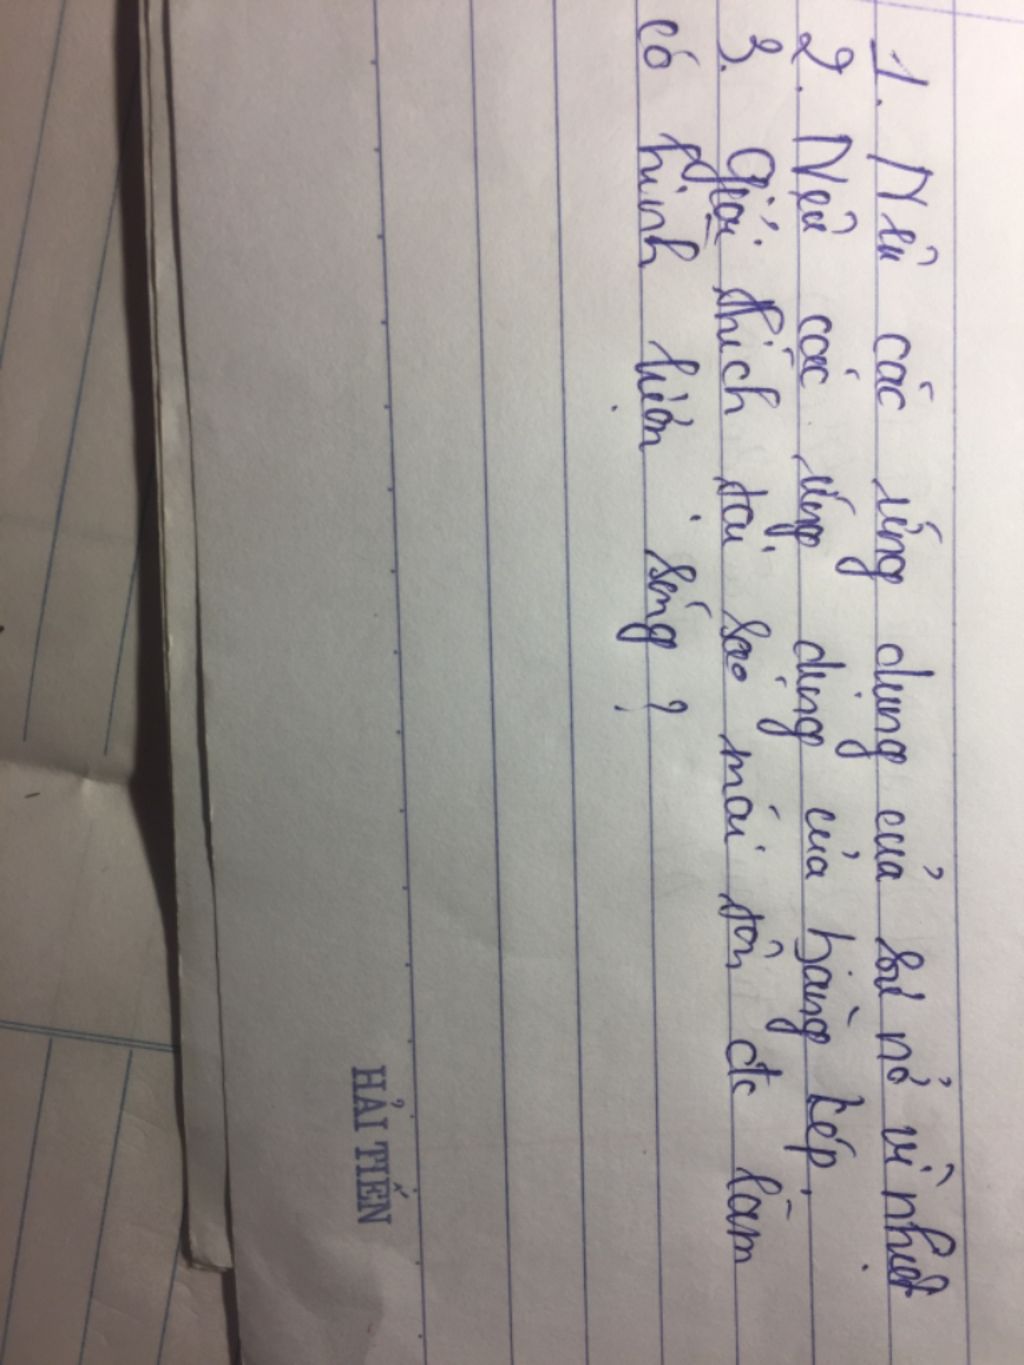 1. Nêu các ứng dụng của sự nở vì nhiệt
2. Nêu các ứng dụng của băng kép.
3. Giải thích tại sao mái tôn đc làm
có hình lượn sóng?
HẢI TIẾN